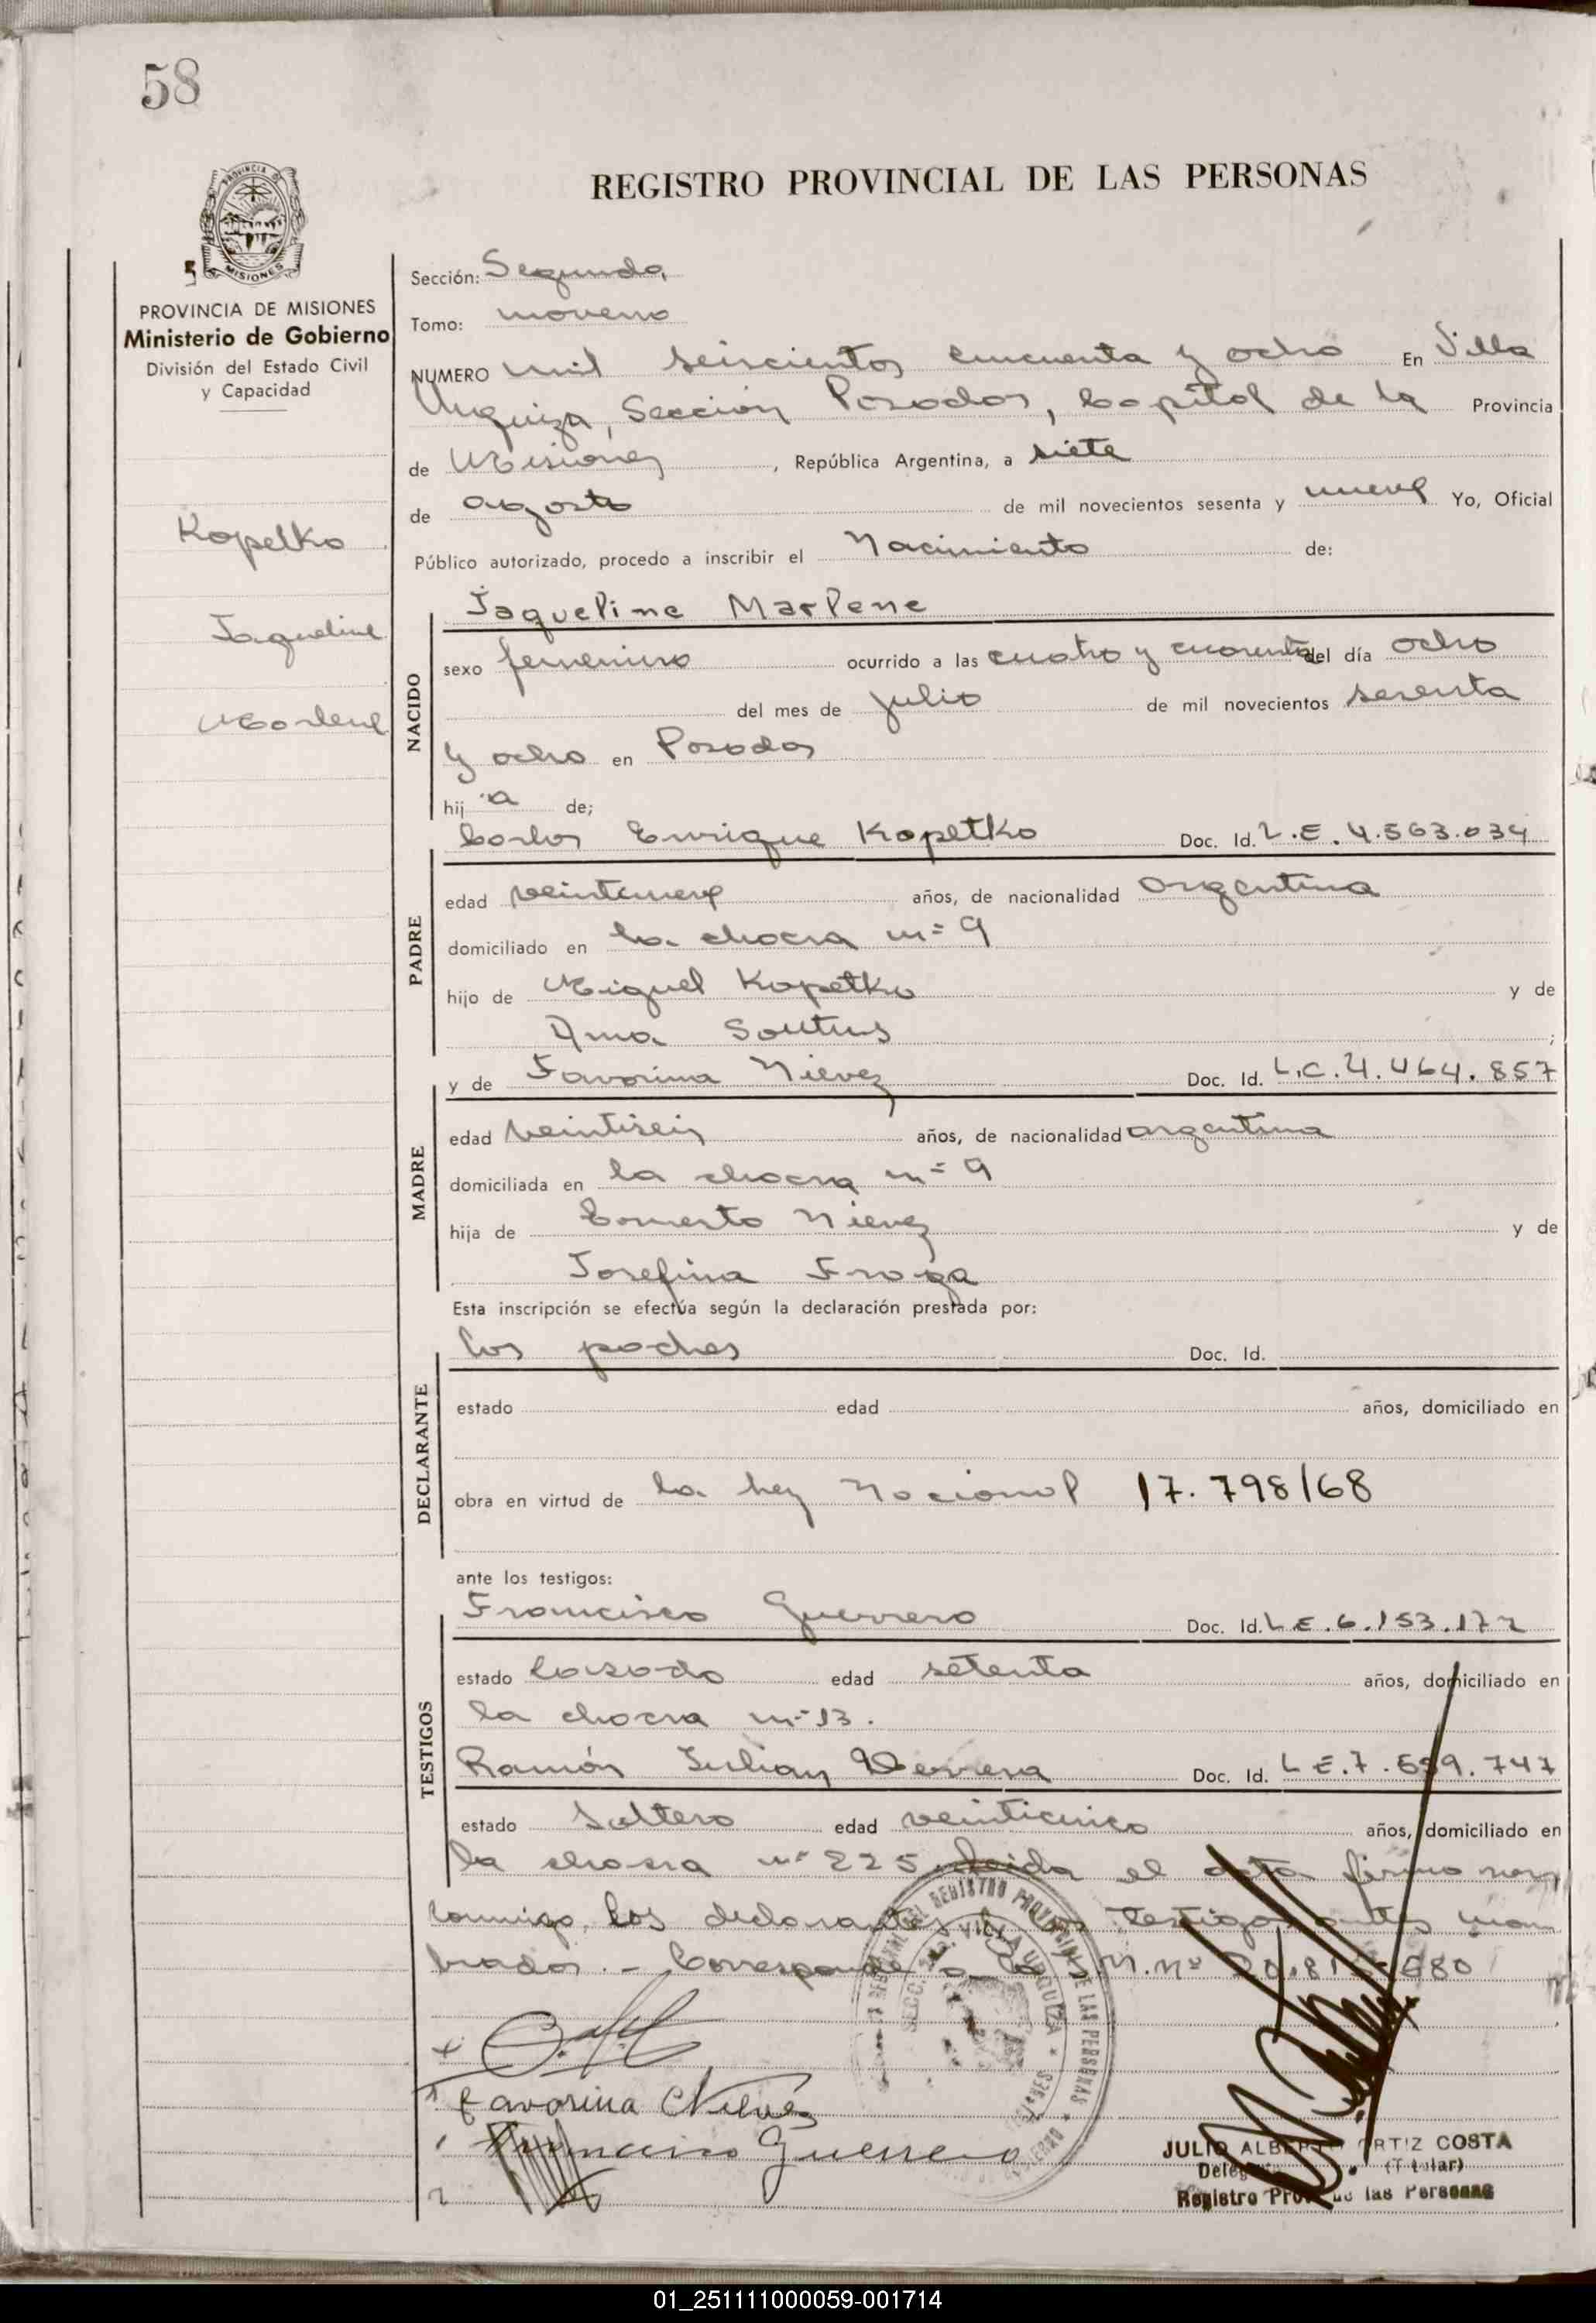 58
REGISTRO PROVINCIAL DE LAS PERSONAS
MISIONES
PROVINCIA DE MISIONES
Ministerio de Gobierno
División del Estado Civil
y Capacidad
Kopetko
Jaqueline
Marlene
Sección: Segunda
Tomo: noveno
NUMERO mil seiscientos cincuenta y ocho En Villa
Urquiza, Sección Posadas, Capital de la Provincia
de Misiones, República Argentina, a siete
de agosto de mil novecientos sesenta y nueve Yo, Oficial
Público autorizado, procedo a inscribir el Nacimiento de:
Jaqueline Marlene
NACIDO
sexo femenino ocurrido a las cuatro y cuarenta del día ocho
del mes de julio de mil novecientos sesenta
y ocho en Posadas
hij a de;
Carlos Enrique Kopetko Doc. Id. L.E. 4.563.034
PADRE
edad veintinueve años, de nacionalidad argentina
domiciliado en la chacra nº 9
hijo de Miguel Kopetko y de
Ana ;
y de Favorina Nievez Doc. Id. L.C. 4.464.857
MADRE
edad veintiseis años, de nacionalidad argentina
domiciliada en la chacra nº 9
hija de Nievez y de
Josefina Fraga
Esta inscripción se efectúa según la declaración prestada por:
los padres Doc. Id.
DECLARANTE
estado edad años, domiciliado en
obra en virtud de la ley Nacional 17.798/68
ante los testigos:
Francisco Guerrero Doc. Id. L.E. 6.153.172
TESTIGOS
estado casado edad setenta años, domiciliado en
la chacra nº 13.
Ramón Julian Doc. Id. L.E. 7.659.747
estado soltero edad veinticinco años, domiciliado en
la chacra nº 225. Leida el acta firman
conmigo los declarantes y los testigos antes nom
brados. - Corresponde a la M. nº 680
Favorina Nievez
Francisco Guerrero
JULIO ALBERTO ORTIZ COSTA
(Titular)
Registro Prov. de las Personas
01_251111000059-001714